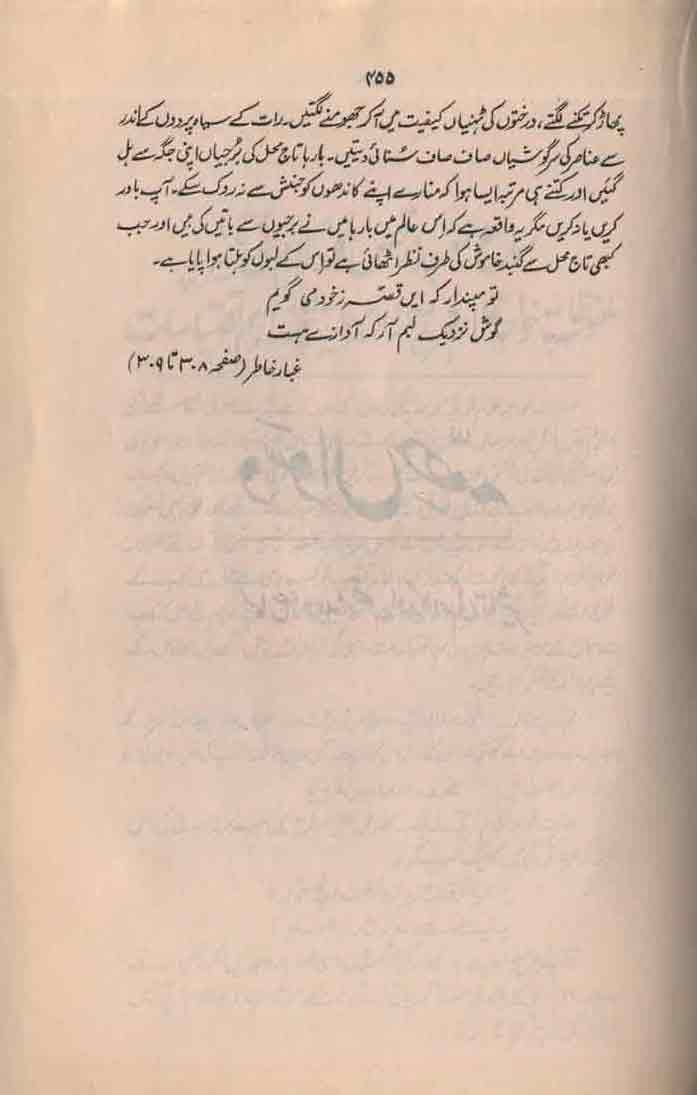 ۴۵۵
پھاڑ کر تکنے لگتے، درختوں کی ٹہنیاں کیفیت میں آ کر جھومنے لگتیں۔ رات کے سیاہ پردوں کے اندر
سے عناصر کی سرگوشیاں صاف صاف سنائی دیتیں۔ بارہا تاج محل کی برجیاں اپنی جگہ سے ہل
گئیں اور کتنے ہی مرتبہ ایسا ہوا کہ منارے اپنے کاندھوں کو جنبش سے نہ روک سکے۔ آپ باور
کریں یا نہ کریں مگر یہ واقعہ ہے کہ اس عالم میں بارہا میں نے برجیوں سے باتیں کی ہیں اور جب
کبھی تاج محل سے گنبد خاموش کی طرف نظر اٹھائی ہے تو اس کے لبوں کو ہلتا ہوا پایا ہے۔
تو مپندار کہ ایں قصہ زخود می گویم
گوش نزدیک لبم آر کہ آوازے ہست
غبار خاطر (صفحہ ۳۰۸ تا ۳۰۹)